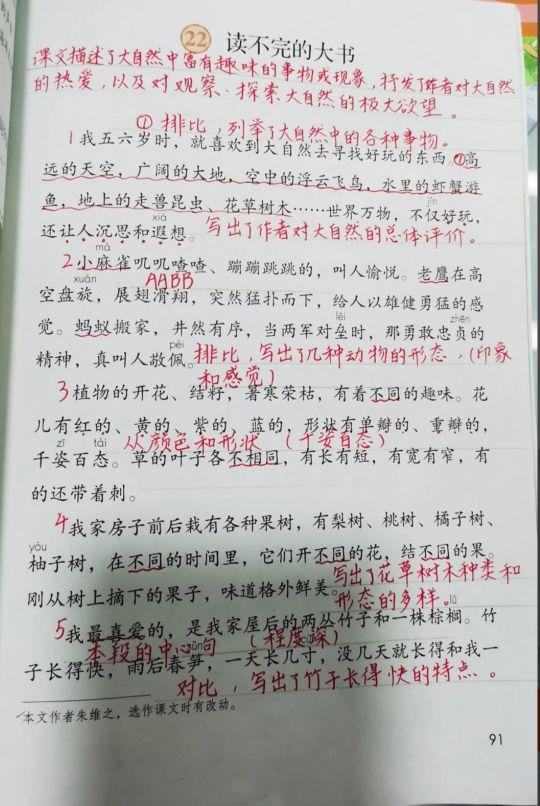 22 读不完的大书
课文描述了大自然中富有趣味的事物或现象，抒发了作者对大自然
的热爱，以及对观察·探索大自然的极大欲望。
① 排比，列举了大自然中的各种事物。
1我五六岁时，就喜欢到大自然去寻找好玩的东西。①高
远的天空，广阔的大地，空中的浮云飞鸟，水里的虾蟹游
鱼，地上的走兽昆虫、花草树木……世界万物，不仅好玩，
jǐn
还让人沉思和遐想。写出了作者对大自然的总体评价。
xiá
má
2小麻雀叽叽喳喳、蹦蹦跳跳的，叫人愉悦。老鹰在高
xuán
AABB
空盘旋，展翅滑翔，突然猛扑而下，给人以雄健勇猛的感
lěi zhēn
觉。蚂蚁搬家，井然有序，当两军对垒时，那勇敢忠贞的
pèi
精神，真叫人敬佩。排比，写出了几种动物的形态，(印象
和感觉)
3植物的开花、结籽，暑寒荣枯，有着不同的趣味。花
儿有红的、黄的、紫的、蓝的，形状有单瓣的、重瓣的，
zī tài
从颜色和形状 (千姿百态)
千姿百态。草的叶子各不相同，有长有短，有宽有窄，有
的还带着刺。
4我家房子前后栽有各种果树，有梨树、桃树、橘子树、
yòu
柚子树，在不同的时间里，它们开不同的花，结不同的果。
刚从树上摘下的果子，味道格外鲜美。写出了花草树木种类和
形态的多样。
lǘ
5我最喜爱的，是我家屋后的两丛竹子和一株棕榈。竹
本段的中心句 (程度深)
sǔn
子长得快，雨后春笋，一天长几寸，没几天就长得和我一
对比，写出了竹子长得快的特点。
本文作者朱维之，选作课文时有改动。
91